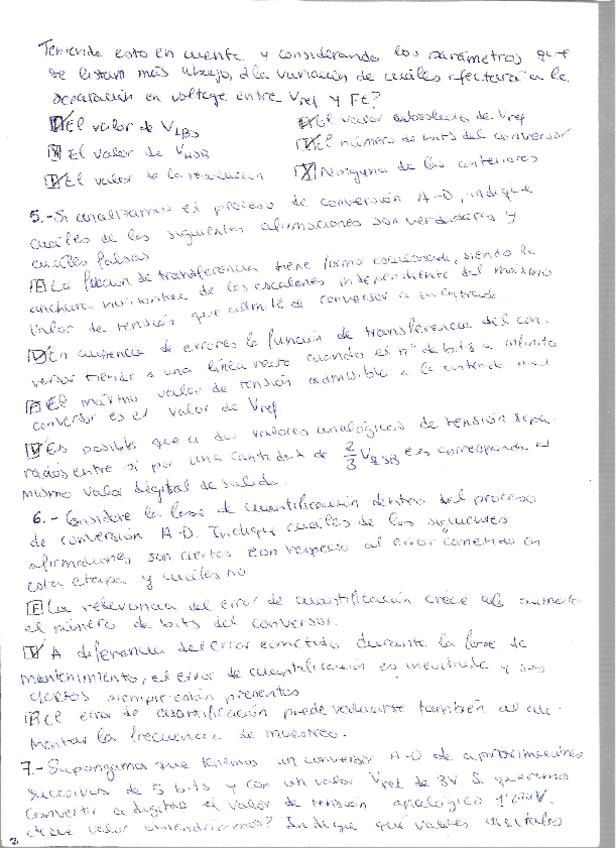 Teniendo esto en cuenta y considerando los parámetros que
se listan más abajo, ¿la variación de cuáles afectaría a la
separación en voltage entre Vref y Fe?
El valor de VLBS
El valor absoluto de Vref
El valor de VMSB
El número de bits del conversor
El valor de la resolución
X Ninguna de las anteriores
5.- Si analizamos el proceso de conversión A-D, indique
cuáles de las siguientes afirmaciones son verdaderas y
cuáles falsas
F La función de transferencia tiene forma escalonada, siendo la
anchura de los escalones independiente del máximo
valor de tensión que admite el conversor a su entrada
V En ausencia de errores la función de transferencia del con-
versor tiende a una línea recta cuando el nº de bits a infinito
F El máximo valor de tensión admisible a la entrada del
conversor es el valor de Vref
V Es posible que a dos valores analógicos de tensión sepa-
rados entre sí por una cantidad de 2/3 VLSB les corresponda el
mismo valor digital de salida.
6.- Considere la fase de cuantificación dentro del proceso
de conversión A-D. Indique cuáles de las siguientes
afirmaciones son ciertas con respecto al error cometido en
esta etapa y cuáles no
F La relevancia del error de cuantificación crece al aumentar
el número de bits del conversor.
V A diferencia del error cometido durante la fase de
mantenimiento, el error de cuantificación es inevitable y sus
efectos siempre están presentes
F El error de cuantificación puede reducirse también al au-
mentar la frecuencia de muestreo.
7.- Supongamos que tenemos un conversor A-D de aproximaciones
sucesivas de 5 bits y con un valor Vref de 3V. Si queremos
convertir a digital el valor de tensión analógico
¿qué valor obtendríamos? Indique qué valores digitales
2